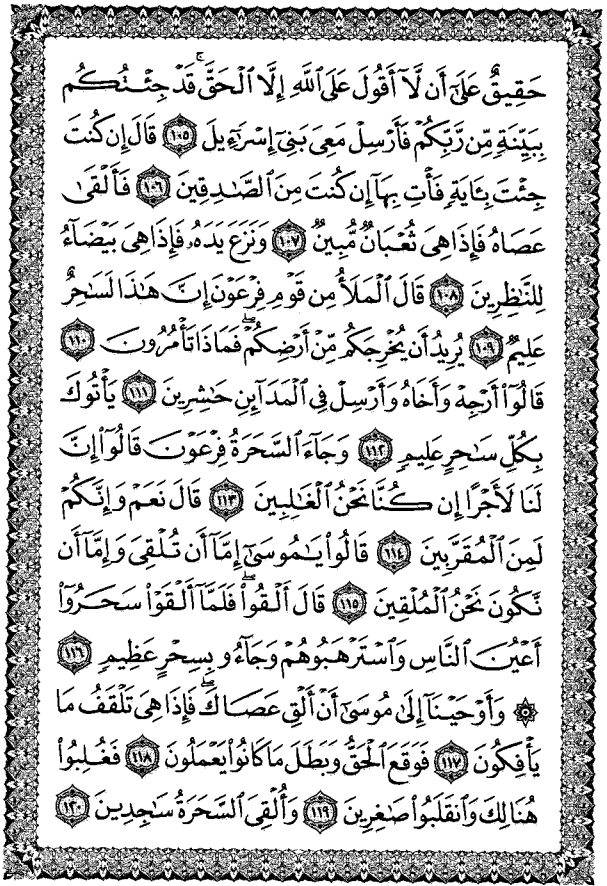 حَقِيقٌ عَلَىٰٓ أَن لَّآ أَقُولَ عَلَى ٱللَّهِ إِلَّا ٱلْحَقَّ ۚ قَدْ جِئْتُكُم
بِبَيِّنَةٍ مِّن رَّبِّكُمْ فَأَرْسِلْ مَعِىَ بَنِىٓ إِسْرَٰٓءِيلَ ١٠٥ قَالَ إِن كُنتَ
جِئْتَ بِـَٔايَةٍ فَأْتِ بِهَآ إِن كُنتَ مِنَ ٱلصَّٰدِقِينَ ١٠٦ فَأَلْقَىٰ
عَصَاهُ فَإِذَا هِىَ ثُعْبَانٌ مُّبِينٌ ١٠٧ وَنَزَعَ يَدَهُۥ فَإِذَا هِىَ بَيْضَآءُ
لِلنَّٰظِرِينَ ١٠٨ قَالَ ٱلْمَلَأُ مِن قَوْمِ فِرْعَوْنَ إِنَّ هَٰذَا لَسَٰحِرٌ
عَلِيمٌ ١٠٩ يُرِيدُ أَن يُخْرِجَكُم مِّنْ أَرْضِكُمْ ۖ فَمَاذَا تَأْمُرُونَ ١١٠
قَالُوٓا۟ أَرْجِهْ وَأَخَاهُ وَأَرْسِلْ فِى ٱلْمَدَآئِنِ حَٰشِرِينَ ١١١ يَأْتُوكَ
بِكُلِّ سَٰحِرٍ عَلِيمٍ ١١٢ وَجَآءَ ٱلسَّحَرَةُ فِرْعَوْنَ قَالُوٓا۟ إِنَّ
لَنَا لَأَجْرًا إِن كُنَّا نَحْنُ ٱلْغَٰلِبِينَ ١١٣ قَالَ نَعَمْ وَإِنَّكُمْ
لَمِنَ ٱلْمُقَرَّبِينَ ١١٤ قَالُوا۟ يَٰمُوسَىٰٓ إِمَّآ أَن تُلْقِىَ وَإِمَّآ أَن
نَّكُونَ نَحْنُ ٱلْمُلْقِينَ ١١٥ قَالَ أَلْقُوا۟ ۖ فَلَمَّآ أَلْقَوْا۟ سَحَرُوٓا۟
أَعْيُنَ ٱلنَّاسِ وَٱسْتَرْهَبُوهُمْ وَجَآءُو بِسِحْرٍ عَظِيمٍ ١١٦
۞ وَأَوْحَيْنَآ إِلَىٰ مُوسَىٰٓ أَنْ أَلْقِ عَصَاكَ ۖ فَإِذَا هِىَ تَلْقَفُ مَا
يَأْفِكُونَ ١١٧ فَوَقَعَ ٱلْحَقُّ وَبَطَلَ مَا كَانُوا۟ يَعْمَلُونَ ١١٨ فَغُلِبُوا۟
هُنَالِكَ وَٱنقَلَبُوا۟ صَٰغِرِينَ ١١٩ وَأُلْقِىَ ٱلسَّحَرَةُ سَٰجِدِينَ ١٢٠